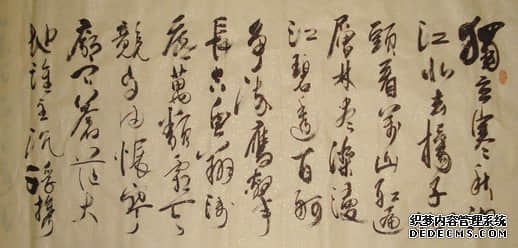 獨立寒秋湘
江北去橘子
頭看万山红遍
層林尽染漫
江碧透百舸
争流鷹擊
長空魚翔淺
底萬類霜天
競自由悵寥
廓问蒼茫大
地誰主沉浮攜
织梦内容管理系统
DEDECMS.COM